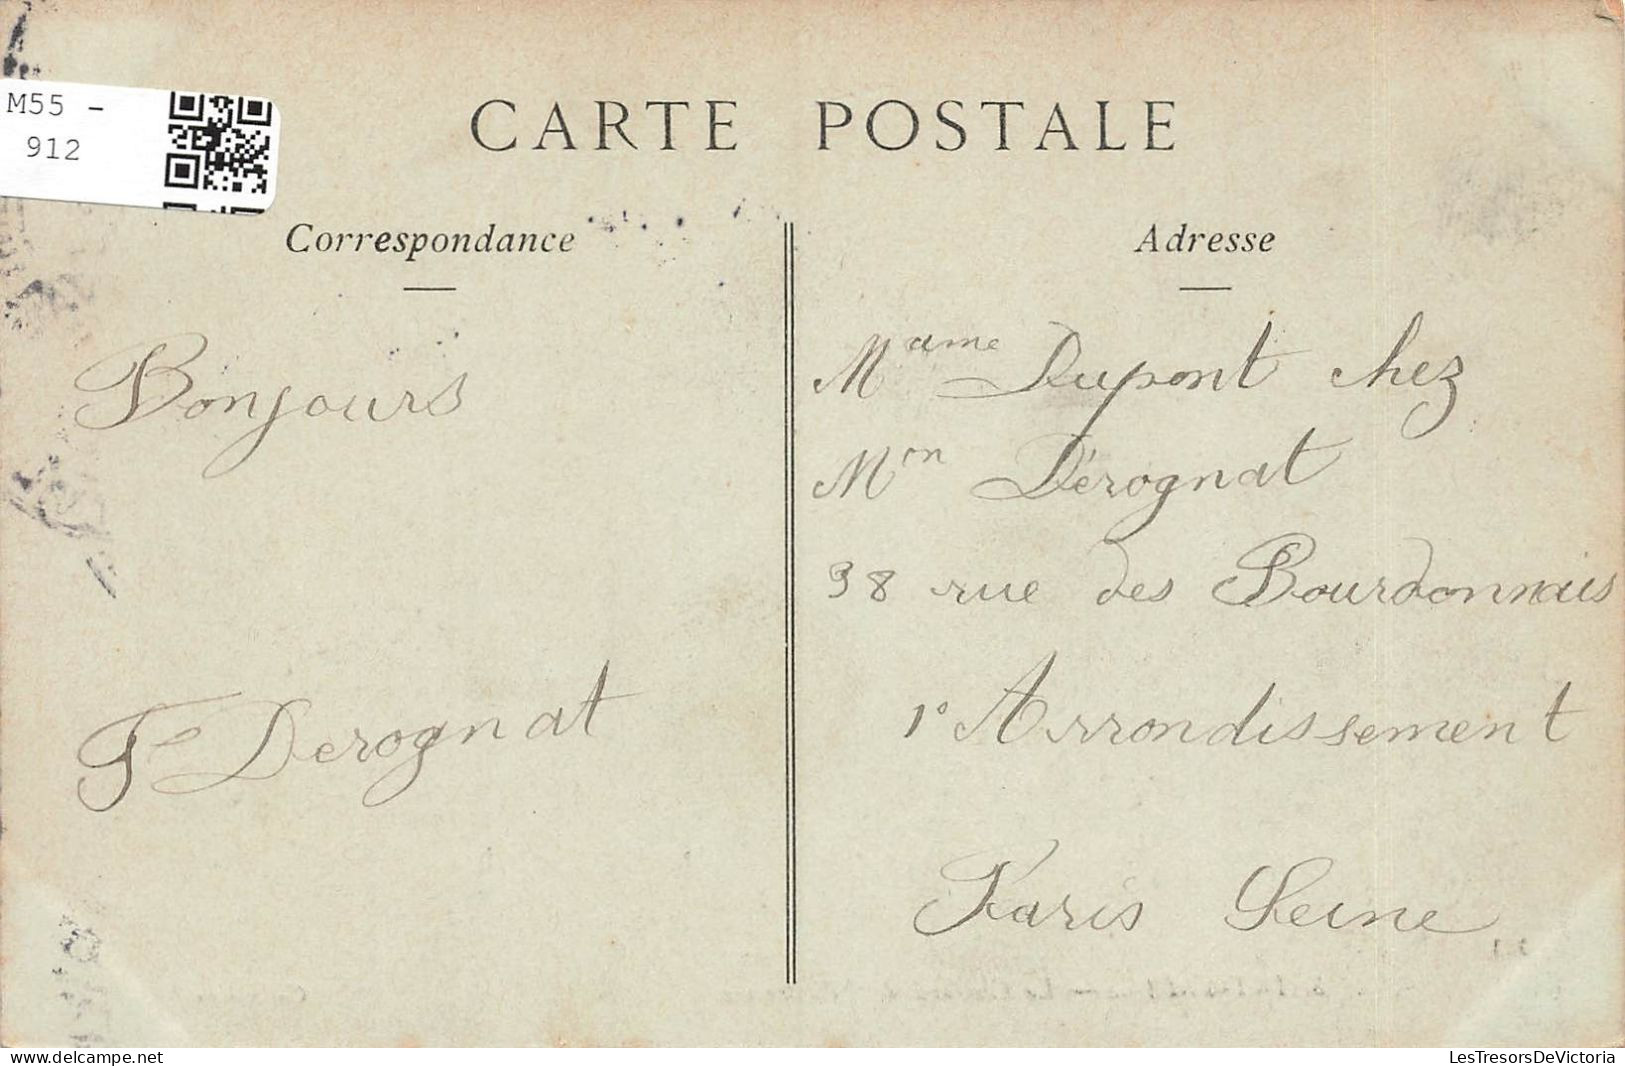 M55 -
912
CARTE POSTALE
Correspondance
Adresse
Bonjours
Fe Derognat
Mame Dupont chez
Mon Dérognat
38 rue des Bourdonnais
1° Arrondissement
Paris Seine
delcampe.net
LesTresorsDeVictoria